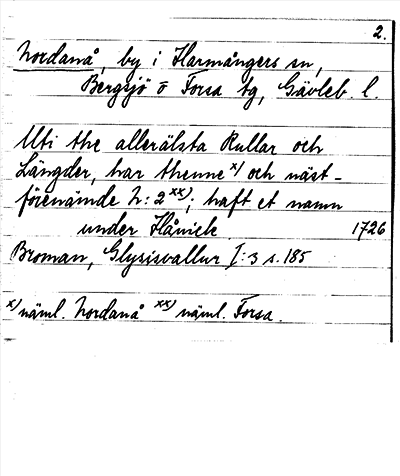 2.
Nordanå, by i Harmångers sn,
Bergsjö o Forsa tg, Gävleb. l.
Uti the allerälsta Rullar och
Längder, har thenne x) och näst-
förenämde N: 2 xx); haft et namn
under Håniek 1726
Broman, Glysisvallur I:3 s. 185
x) näml. Nordanå xx) näml. Forsa.